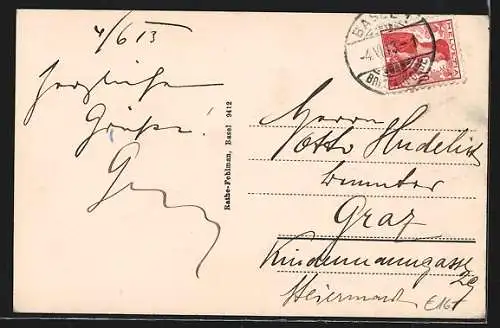 4/6 13
herzliche
Grüße!
Rathe-Fehlman, Basel 9412
BASEL
HELVETIA
Herrn
Otto Hudelist
Beamter
Graz
Kindermanngasse
29
Steiermark
£16+